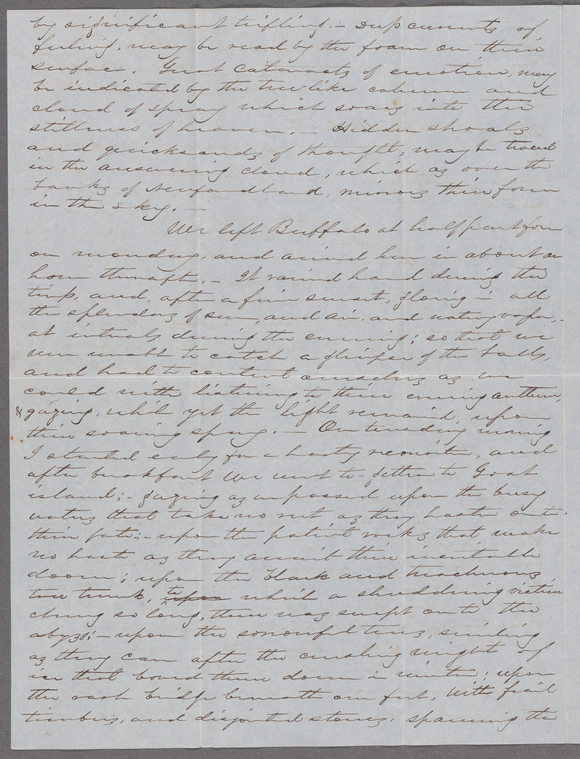 by significant trifling; - Deep currents of
feeling, may be read by the foam on their
surface. Great Cataracts of emotion, may
be indicated by the tree-like column and
cloud of spray which soars into the
stillness of heaven. - Hidden shoals
and quicksands of thought, may be traced
in the answering cloud, which as over the
banks of Newfoundland, mirrors their form
in the sky. -
We left Buffalo at half past four
on monday, and arrived here in about an
hour thereaft. - It rained hard during the
trip, and, after a fine sunset, glowing in all
the splendor of sun, and air, and watery vapor, -
at intervals during the evening; so that we
were unable to catch a glimpse of the Falls,
and had to content ourselves as we
could with listening to their unceasing anthem,
& gazing, while yet the light remained, upon
their soaring spray. - On tuesday morning
I started early for a hasty reconnoitre, and
after breakfast we went to - gether to Goat
island; - gazing as we passed upon the busy
waters that take no rest as they haste onto
their fate; - upon the patient rocks that make
no haste as they await their inevitable
doom; upon the black and treacherous
tree trunk, to upon which a shuddering victim
clung so long, then was swept on to the
abyss; - upon the sorrowful trees, smiling
as they can after the crushing weight of
ice that bound them down in winter; upon
the rash bridge beneath our feet, with frail
timbers, and disjointed stones, spanning the